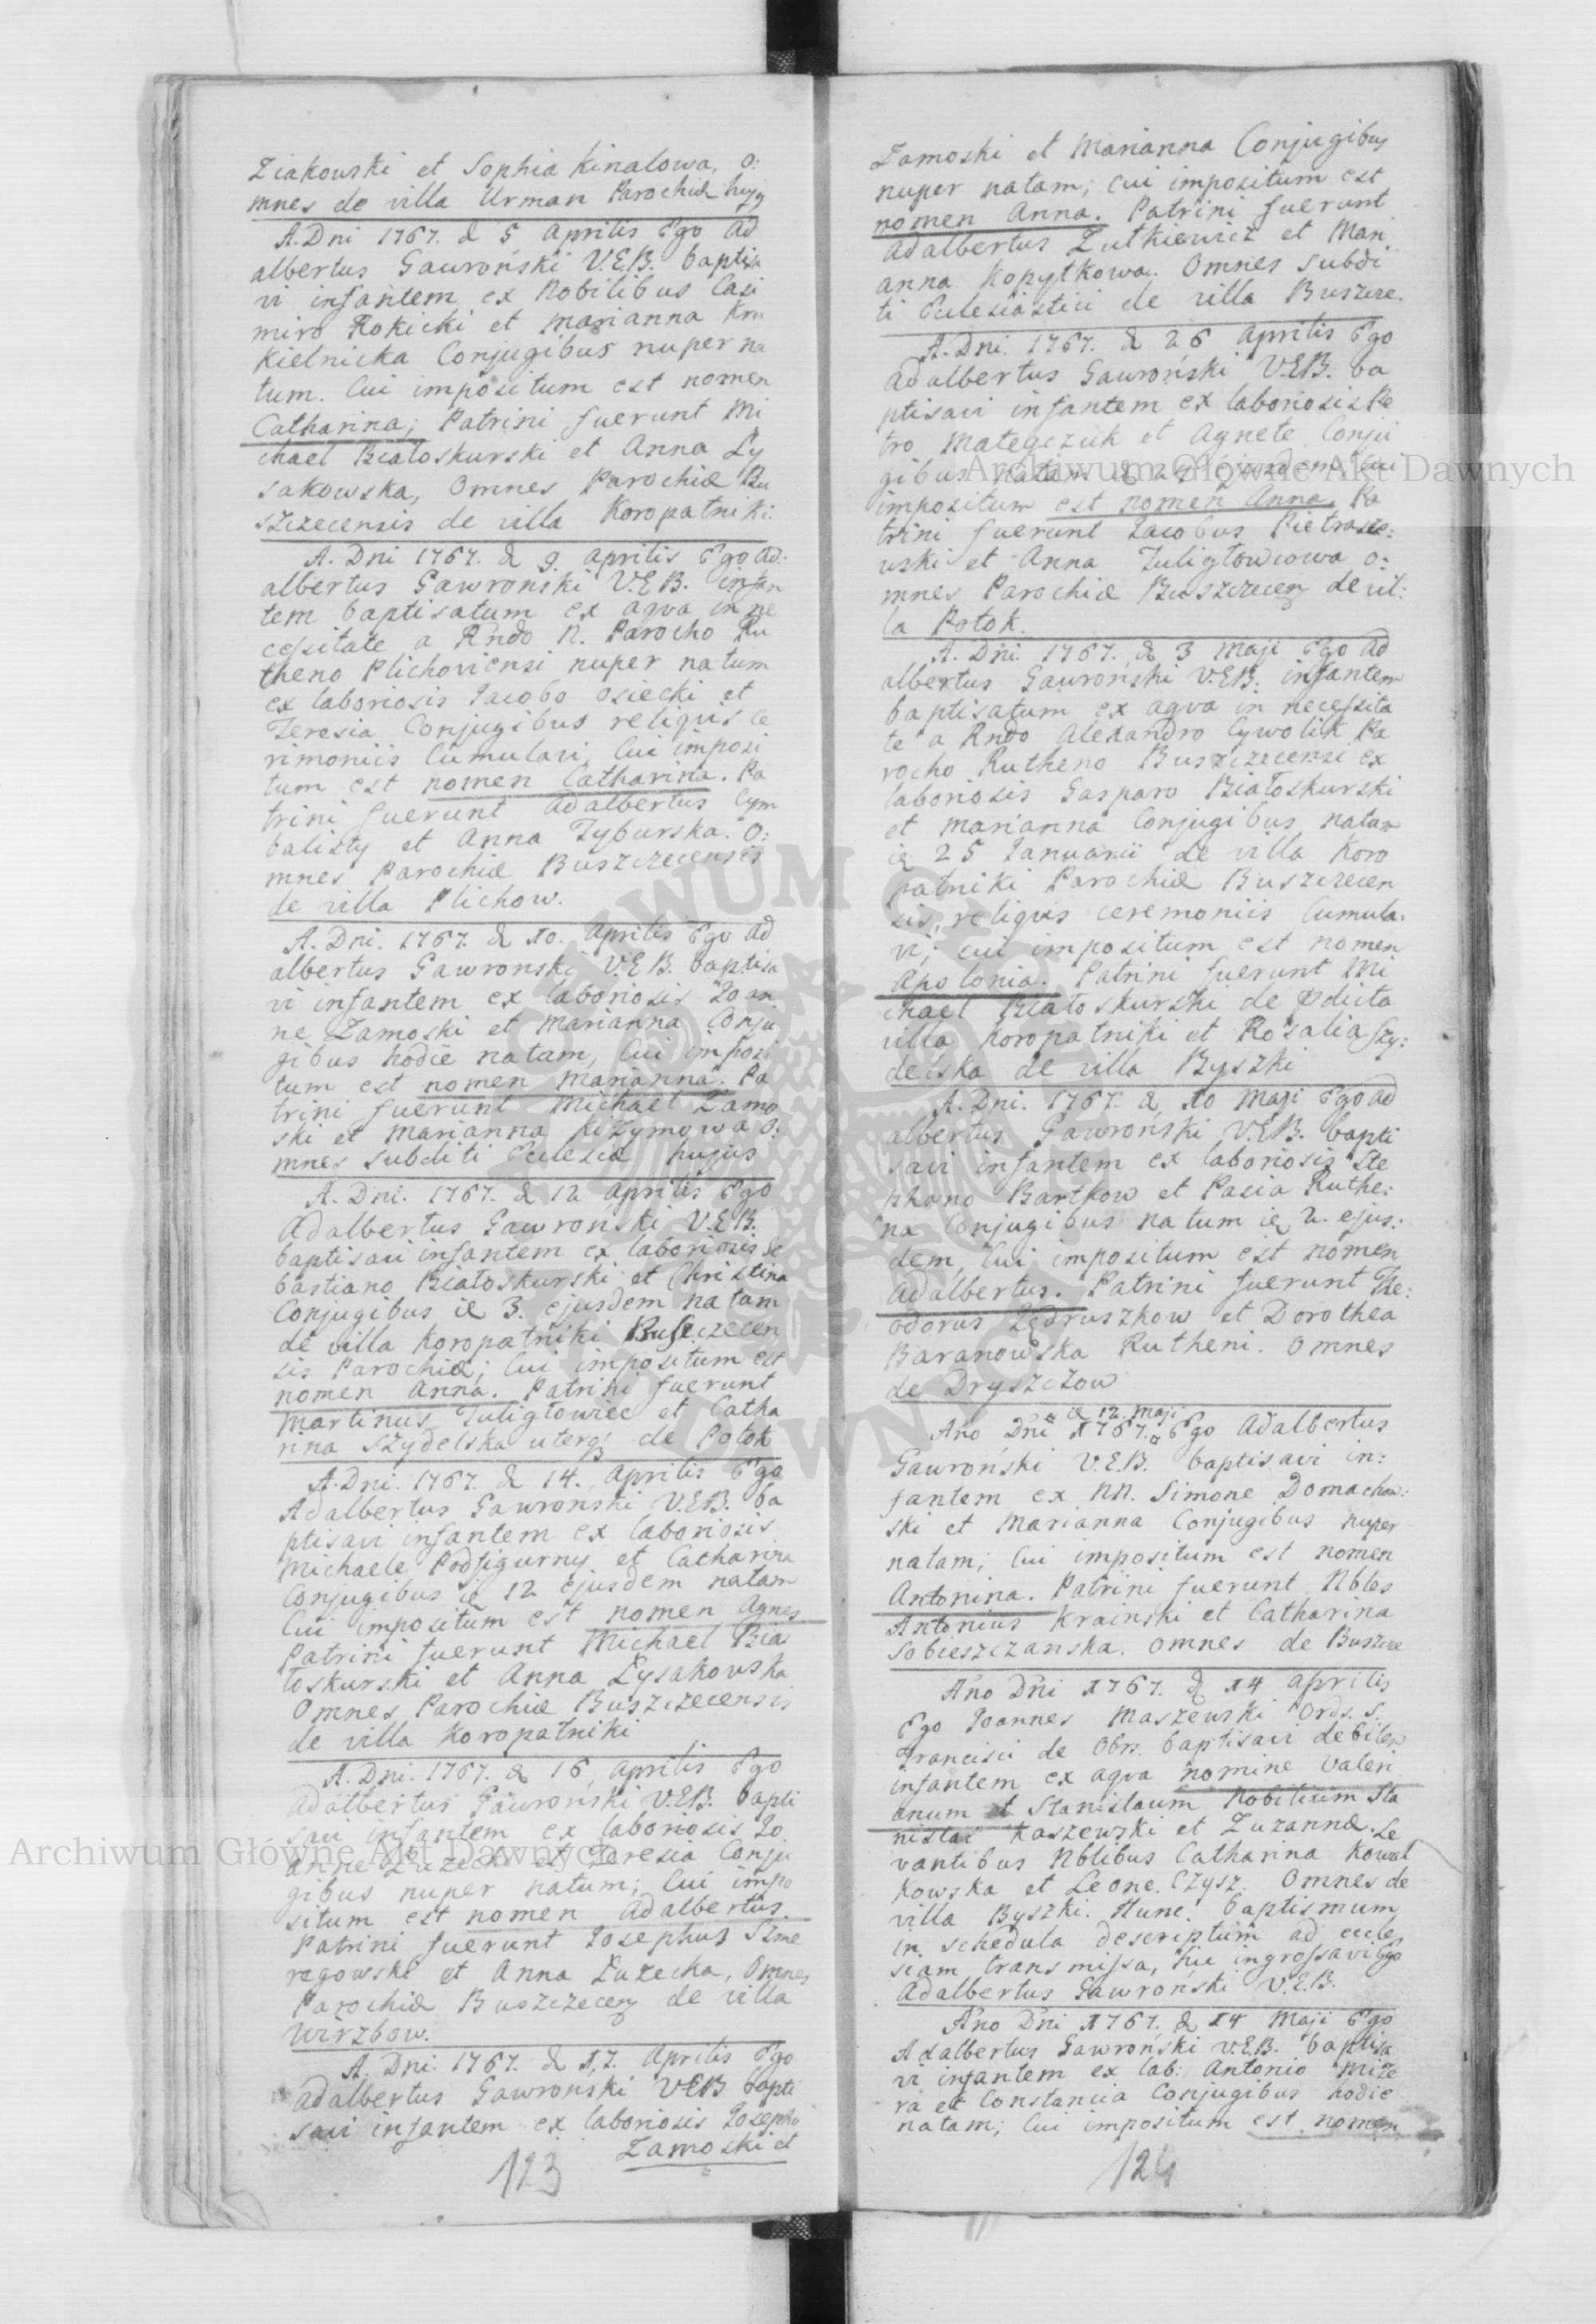 Ziakowski et Sophia Kinalowa, o:
mnes de villa Urman Parochiæ hujq
A. Dni 1767. d 5 Aprilis Ego Ad
albertus Gawroński V.E.B. baptisa
vi infantem ex Nobilibus Casi
miro Rokicki et Marianna Kru
kielnicka Conjugibus nuper na
tum. Cui impositum est nomen
Catharina; Patrini fuerunt Mi
chael Białoskurski et Anna Ły
sakowska, Omnes Parochiæ Bu
szczecensis de villa Koropatniki.
A. Dni 1767. d 9. Aprilis Ego Ad:
albertus Gawronski V.E.B. infan
tem baptisatum ex aqva in ne
cessitate a Rndo N. Parocho Ru
theno Plichoviensi nuper natum
ex laboriosis Jacobo Osiecki et
Teresia Conjugibus reliqvis ce
rimoniis Cumulavi, Cui imposi
tum est nomen Catharina. Pa
trini fuerunt Adalbertus Cym
balisty et Anna Tyburska. O:
mnes Parochiæ Buszczecensis
de villa Plichow.
A. Dni. 1767. d 10. Aprilis Ego Ad
albertus Gawronski V.E.B. baptisa
vi infantem ex laboriosis Joan
ne Zamoski et Marianna Conju
gibus hodie natam, Cui imposi
tum est nomen Marianna. Pa
trini fuerunt Michael Zamo
ski et Marianna o:
mnes subditi Eclesiæ hujus
A. Dni. 1767. d 12 Aprilis Ego
Adalbertus Gawroński V.E.B.
baptisavi infantem ex laboriosis Se
bastiano Białoskurski et Christina
Conjugibus ie 3. ejusdem natam
de villa Koropatniki Busczecen
sis Parochiæ; Cui impositum est
nomen Anna. Patrini fuerunt
Martinus Tuligłowiec et Catha
rina Szydelska uterq de Potok
A. Dni. 1767. d 14. Aprilis Ego
Adalbertus Gawronski V.E.B. ba
ptisavi infantem ex laboriosis
Michaele Podfigurny et Catharina
Conjugibus ie 12 ejusdem natam
Cui impositum est nomen Agnes
Patrini fuerunt Michael Bia
łoskurski et Anna Łysakowska
Omnes Parochiæ Buszczecensis
de villa Koropatniki
A. Dni. 1767. d 16, Aprilis Ego
Adalbertus Gawronski V.E.B. bapti
savi infantem ex laboriosis Jo
anne Łuzecki et Teresia Conju
gibus nuper natum; Cui impo
situm est nomen Adalbertus.
Patrini fuerunt Josephus Szme
ragowski et Anna Łuzecka, Omnes
Parochiæ Buszczecen de villa
Wirzbow.
A. Dni. 1767. d 17. Aprilis Ego
Adalbertus Gawroński VEB bapti
savi infantem ex laboriosis Josepho
Zamoski et
123
Zamoski et Marianna Conjugibus
nuper natam; Cui impositum est
nomen Anna. Patrini fuerunt
Adalbertus Zutkiewicz et Mari
anna Kopytkowa. Omnes subdi
ti Eclesiastici de villa Buszcze.
A. Dni. 1767. d 26 Aprilis Ego
Adalbertus Gawroński V.E.B. ba
ptisavi infantem ex laboriosis Pe
tro Mategczuk et Agnete Conju
gibus natam d 24 ejusdem, Cui
impositum est nomen Anna. Pa
trini fuerunt Jacobus Pietrasze:
wski et Anna Tuligłowcowa o:
mnes Parochiæ Buszczecen de vil:
la Potok.
A. Dni. 1767. d 3 Maji Ego Ad
albertus Gawroński V.E.B. infantem
baptisatum ex aqva in necessita
te a Rndo Alexandro Cywolik Pa
rocho Rutheno Buszczecensi ex
laboriosis Gasparo Białoskurski
et Marianna Conjugibus natam
ie 25 Januarii de villa Koro
patniki Parochiæ Buszczecen
sis, reliqvis ceremoniis Cumula:
vi; cui impositum est nomen
Apolonia. Patrini fuerunt Mi
chael Białoskurski de pdicta
villa Koropatniki et Rosalia Szy:
delska de villa Byszki
A. Dni. 1767. d 10 Maji Ego Ad
albertus Gawroński V.E.B. bapti
savi infantem ex laboriosis Ste
phano Bartkow et Pasia Ruthe:
na Conjugibus natum ie 2. ejus:
dem, Cui impositum est nomen
Adalbertus. Patrini fuerunt The:
odorus Jędruszkow et Dorothea
Baranowska Rutheni. Omnes
de Dryszczow
ie 12. Maji
Ano Dni 1767. Ego Adalbertus
Gawroński V.E.B. baptisavi in:
fantem ex NN. Simone Domachow:
ski et Marianna Conjugibus nuper
natam; Cui impositum est nomen
Antonina. Patrini fuerunt Nbles
Antonius Krainski et Catharina
Sobieszczanska. Omnes de Buszcze
Ano Dni 1767. d 14 Aprilis
Ego Joannes Maszewski Ords. S.
Francisci de Obs. baptisavi debilem
infantem ex aqva nomine Valeri
anum et Stanislaum Nobilium Sta
nislai Kaszewski et Zuzannæ. Le
vantibus Nblibus Catharina Kowal
kowska et Leone Czysz. Omnes de
villa Byszki. Hunc baptismum
in schedula descriptum ad eccle
siam transmissa, huc ingrossavi Ego
Adalbertus Gawroński V.E.B.
Ano Dni 1767. d 14 Maji Ego
Adalbertus Gawroński V.E.B. baptisa
vi infantem ex lab: Antonio Mize
ra et Constancia Conjugibus hodie
natam; Cui impositum est nomen
124
Archiwum Główne Akt Dawnych
Archiwum Główne Akt Dawnych